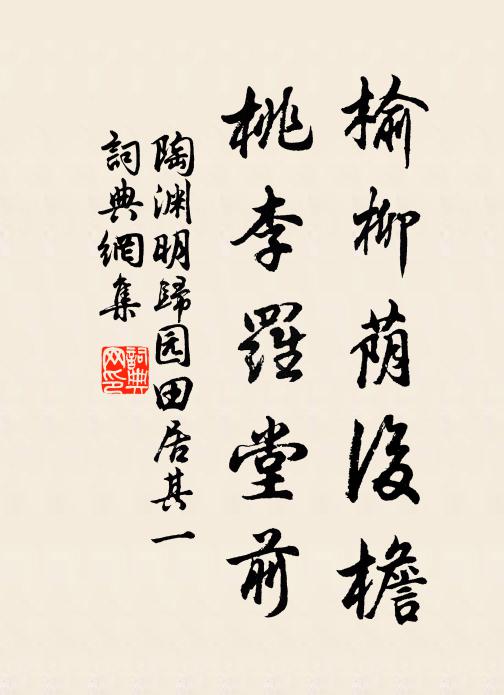 榆柳荫後檐
桃李羅堂前
陶渊明歸园田居其一
詞典網集
詞典网印